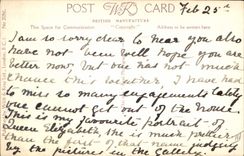 POST CARD Feb 25th
BRITISH MANUFACTURE
This Space for Communication "Copyright" Address to be written here
I am so sorry dear to hear you also
have not been well hope you are
better now but one has not much
chance this weather. I have had
to miss so many engagements lately
one cannot get out of the house
This is my favourite portrait of
Queen Elizabeth, she is much prettier
than the first of that name judging
by the pictures in the Gallery